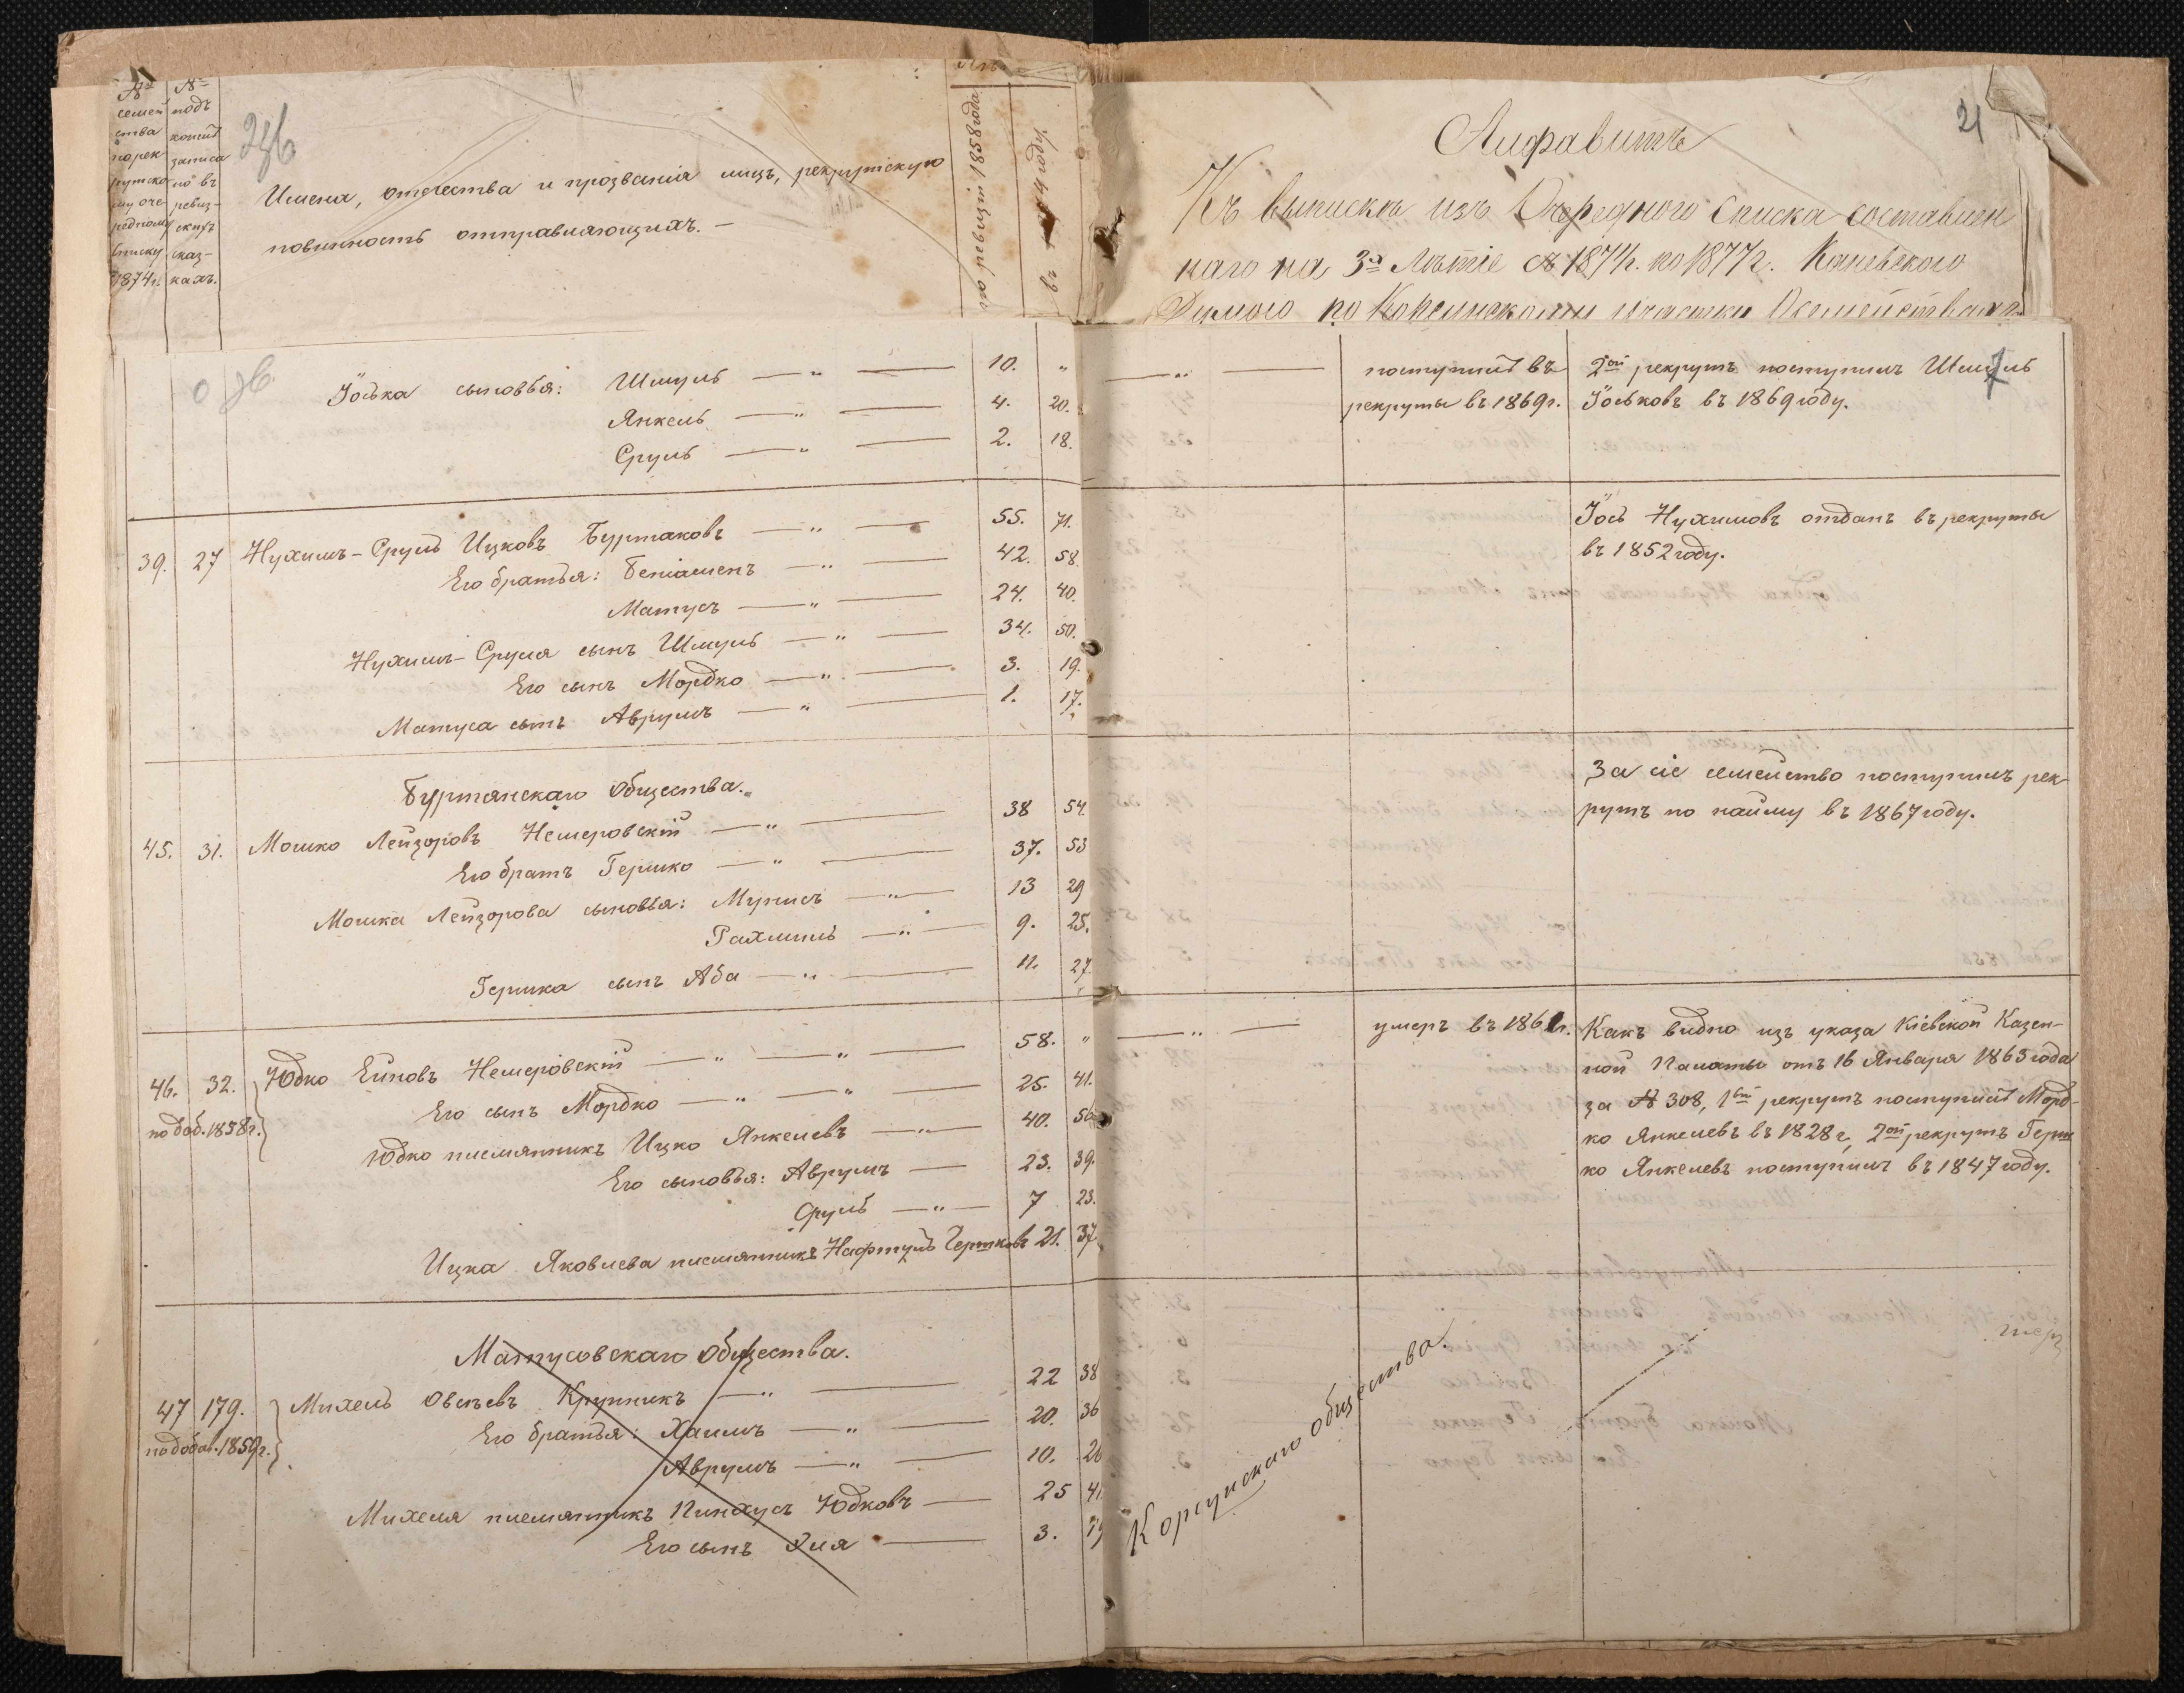 № семейства по рекрутскому очередному списку 1874 г.
№ подъ коимъ записано въ ревизскихъ сказкахъ.
Имена, отечества и прозванія лицъ, рекрутскую
повинность отправляющихъ. —
по ревизіи 1858 года
въ 1874 году.
21
Алфавитъ
Къ выпискѣ изъ Очереднаго списка составлен
наго на 3х Лѣтіе съ 1874 г. по 1877 г. Каневскаго
по участку
Іоська сыновья: Шмуль — " — 10. " — " —
поступилъ въ рекруты въ 1869 г.
2ой рекрутъ поступилъ Шмуль
Іоськовъ въ 1869 году.
7
Янкель — " — 4. 20.
Сруль — " — 2. 18.
39. 27 Нухимъ-Сруль Ицковъ Буртаковъ — " — 55. 71.
Іось Нухимовъ отданъ въ рекруты
въ 1852 году.
Его братья: Беніаменъ — " — 42. 58.
Матусъ — " — 24. 40.
Нухимъ-Сруля сынъ Шмуль — " — 34. 50.
Его сынъ Мордко — " — 3. 19.
Матуса сынъ Аврумъ — " — 1. 17.
Буртянскаго Общества.
45. 31. Мошко Лейзоровъ Немеровскій — " — 38 54.
За сіе семейство поступилъ рек-
рутъ по найму въ 1867 году.
Его братъ Гершко — " — 37. 53
Мошка Лейзорова сыновья: Мунисъ — " — 13 29
Рахмиль — " — 9. 25.
Гершка сынъ Аба — " — 11. 27.
46. 32. Юдко Ейновъ Немеровскій — " — " — 58. " — " —
по доб. 1858 г.
умеръ въ 1861 г.
Какъ видно изъ указа Кіевской Казен-
ной Палаты отъ 16 Января 1863 года
за № 308, 1ый рекрутъ поступилъ Морд-
ко Янкелевъ въ 1828 г, 2ой рекрутъ Герш
ко Янкелевъ поступилъ въ 1847 году.
Его сынъ Мордко — " — " — 25. 41.
Юдко племянникъ Ицко Янкелевъ — " — 40. 56
Его сыновья: Аврумъ — 23. 39.
Сруль — " — 7 23.
Ицка Яковлева племянникъ Нафтуль Гершковъ 21. 37
Матусовскаго Общества.
47 179. Михель Овсѣевъ Крупникъ — " — 22 38
по добав. 1859 г.
Его братья: Хаимъ — " — 20. 36
Аврумъ — " — 10. 26
Михеля племянникъ Пинхусъ Юдковъ — 25 41
Его сынъ — 3. 19
Корсунскаго общества.